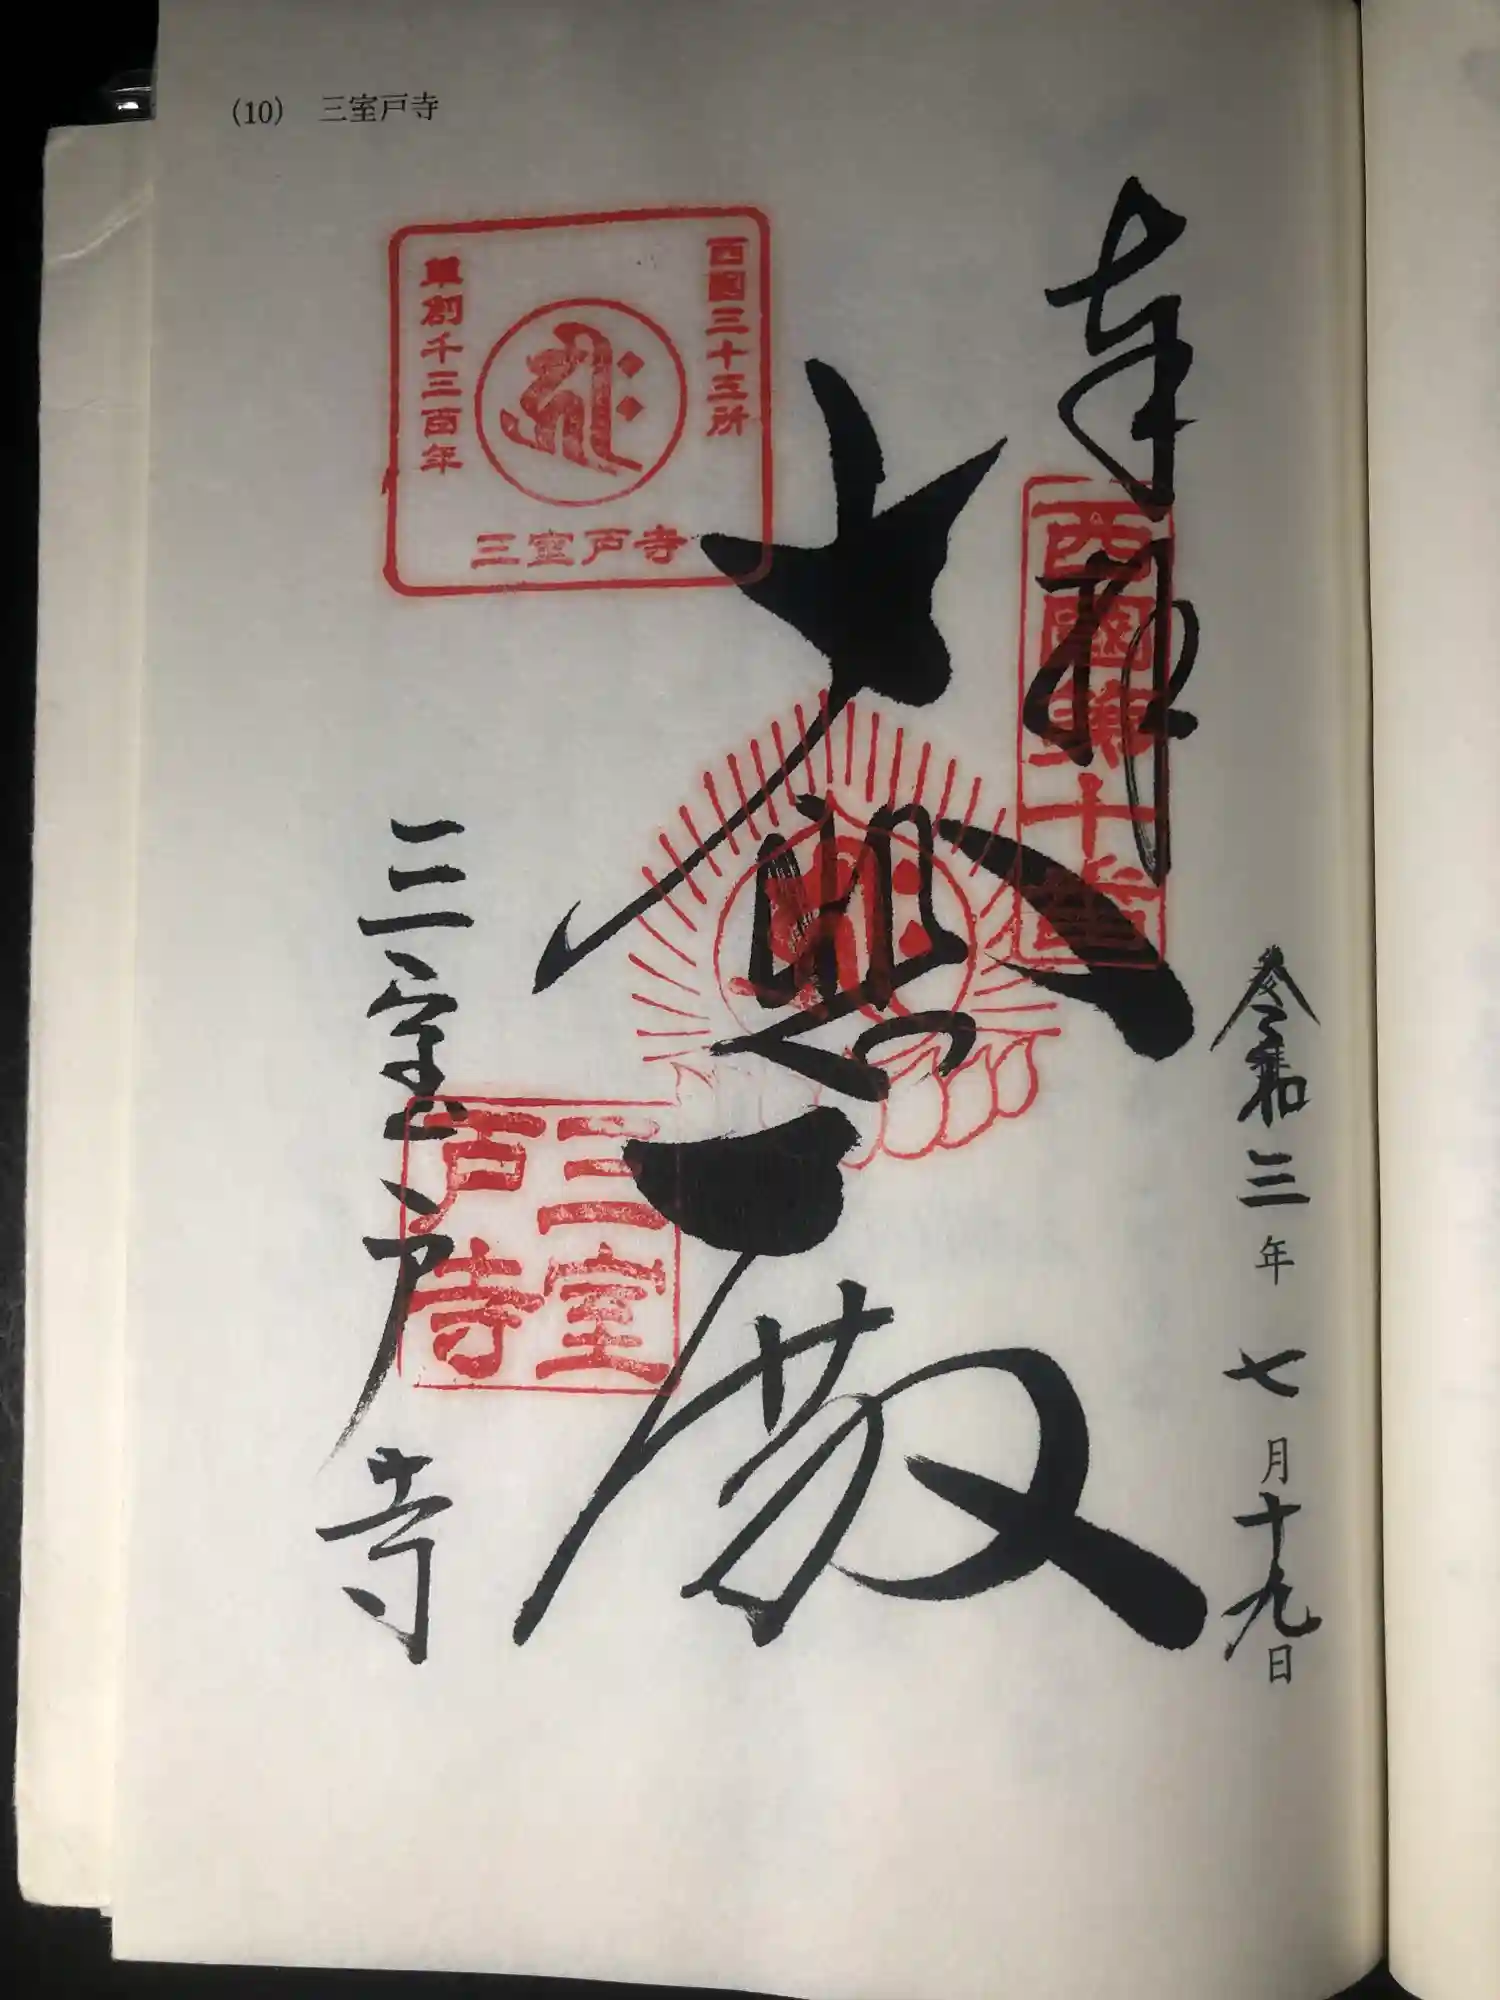 (10) 三室戸寺
奉拝
西國第十番
令和三年七月十九日
大悲殿
西國三十三所
草創千三百年
三室戸寺
三室戸寺
三室戸寺